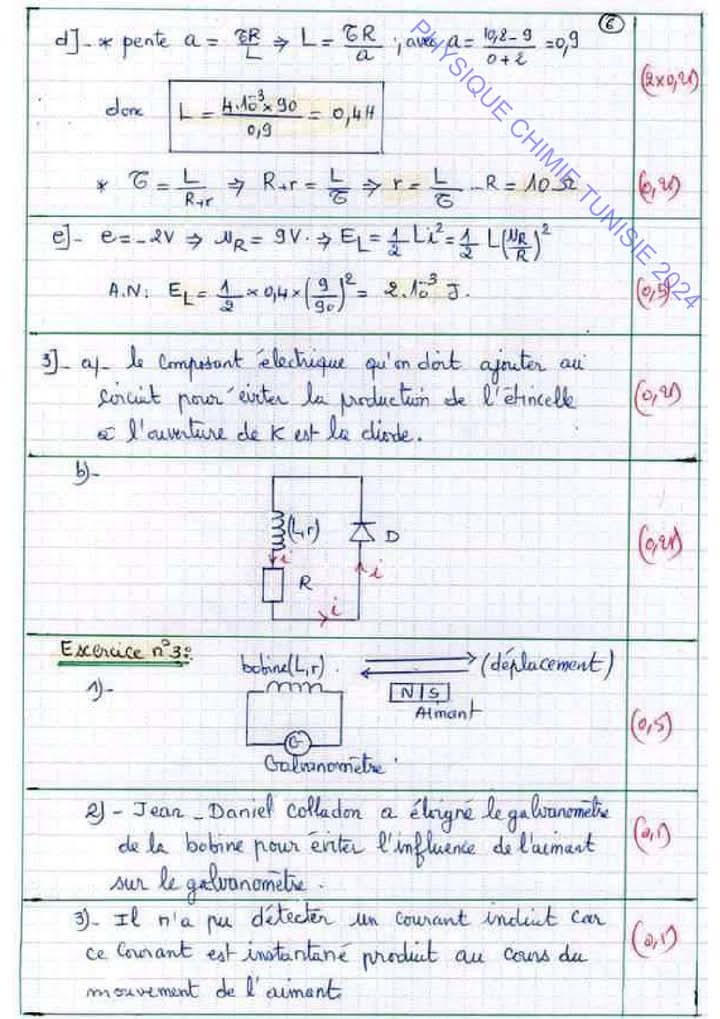 6
d]- * pente a = τR/L ⇒ L = τR/a ; avec a = 10,8 - 9 / 0 + 2 = 0,9
(2x0,25)
donc L = 4.10⁻³ x 90 / 0,9 = 0,4H
* τ = L/R+r ⇒ R+r = L/τ ⇒ r = L/τ - R = 10 Ω
(0,25)
e]- e = -2V ⇒ uR = 9V. ⇒ EL = 1/2 Li² = 1/2 L(uR/R)²
A.N: EL = 1/2 x 0,4 x (9/90)² = 2.10⁻³ J.
(0,5)
3]- a)- le composant électrique qu'on doit ajouter au
circuit pour éviter la production de l'étincelle
à l'ouverture de K est la diode.
(0,25)
b)-
(L,r)
D
i
i
R
i
(0,25)
Exercice n°3:
bobine(L,r)
(déplacement)
1)-
N|S
Aimant
G
Galvanomètre
(0,5)
2)- Jean-Daniel Colladon a éloigné le galvanomètre
de la bobine pour éviter l'influence de l'aimant
sur le galvanomètre.
(0,1)
3)- Il n'a pu détecter un courant induit car
ce courant est instantané produit au cours du
mouvement de l'aimant.
(0,1)
PHYSIQUE CHIMIE TUNISIE 2024